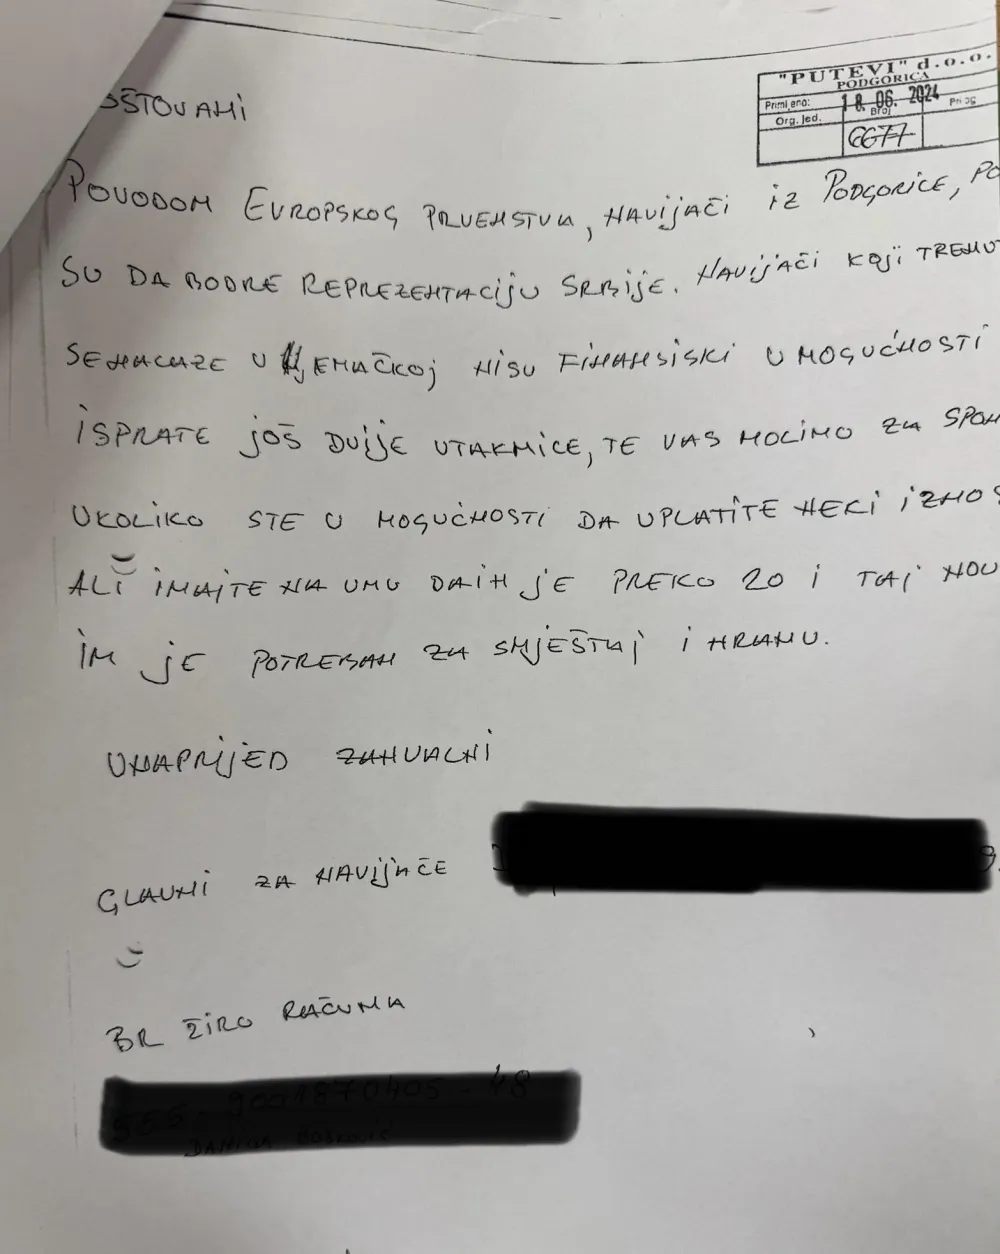 "PUTEVI" d.o.o.
PODGORICA
Primljeno: 18. 06. 2024
Org. Jed. Broj
6677
OŠTOVANI
POVODOM EVROPSKOG PRVENSTVA, NAVIJAČI IZ PODGORICE, PO
SU DA BODRE REPREZENTACIJU SRBIJE. NAVIJAČI KOJI TRENUT
SE NALAZE U NJEMAČKOJ NISU FINANSISKI U MOGUĆNOSTI
ISPRATE JOŠ DVIJE UTAKMICE, TE VAS MOLIMO ZA SPON
UKOLIKO STE U MOGUĆNOSTI DA UPLATITE NEKI IZNOS
ALI IMAJTE NA UMU DA IH JE PREKO 20 I TAJ NOV
IM JE POTREBAN ZA SMJEŠTAJ I HRANU.
UNAPRIJED ZAHVALNI
GLAVNI ZA NAVIJAČE
BR ŽIRO RAČUNA